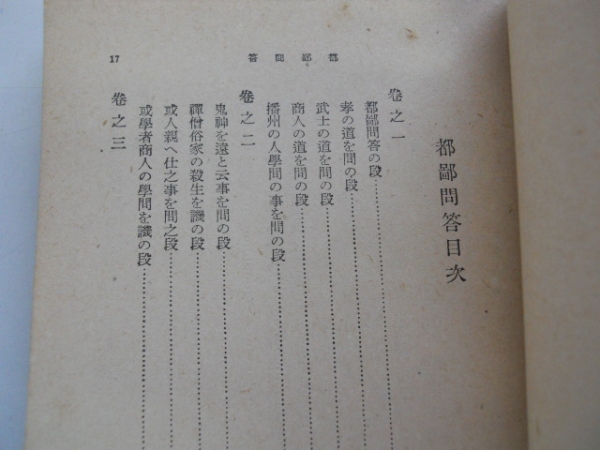 都鄙問答
17
都鄙問答目次
卷之一
都鄙問答の段
孝の道を問の段
武士の道を問の段
商人の道を問の段
播州の人學問の事を問の段
卷之二
鬼神を遠と云事を問の段
禪僧俗家の殺生を譏の段
或人親へ仕之事を問之段
或學者商人の學問を譏の段
卷之三